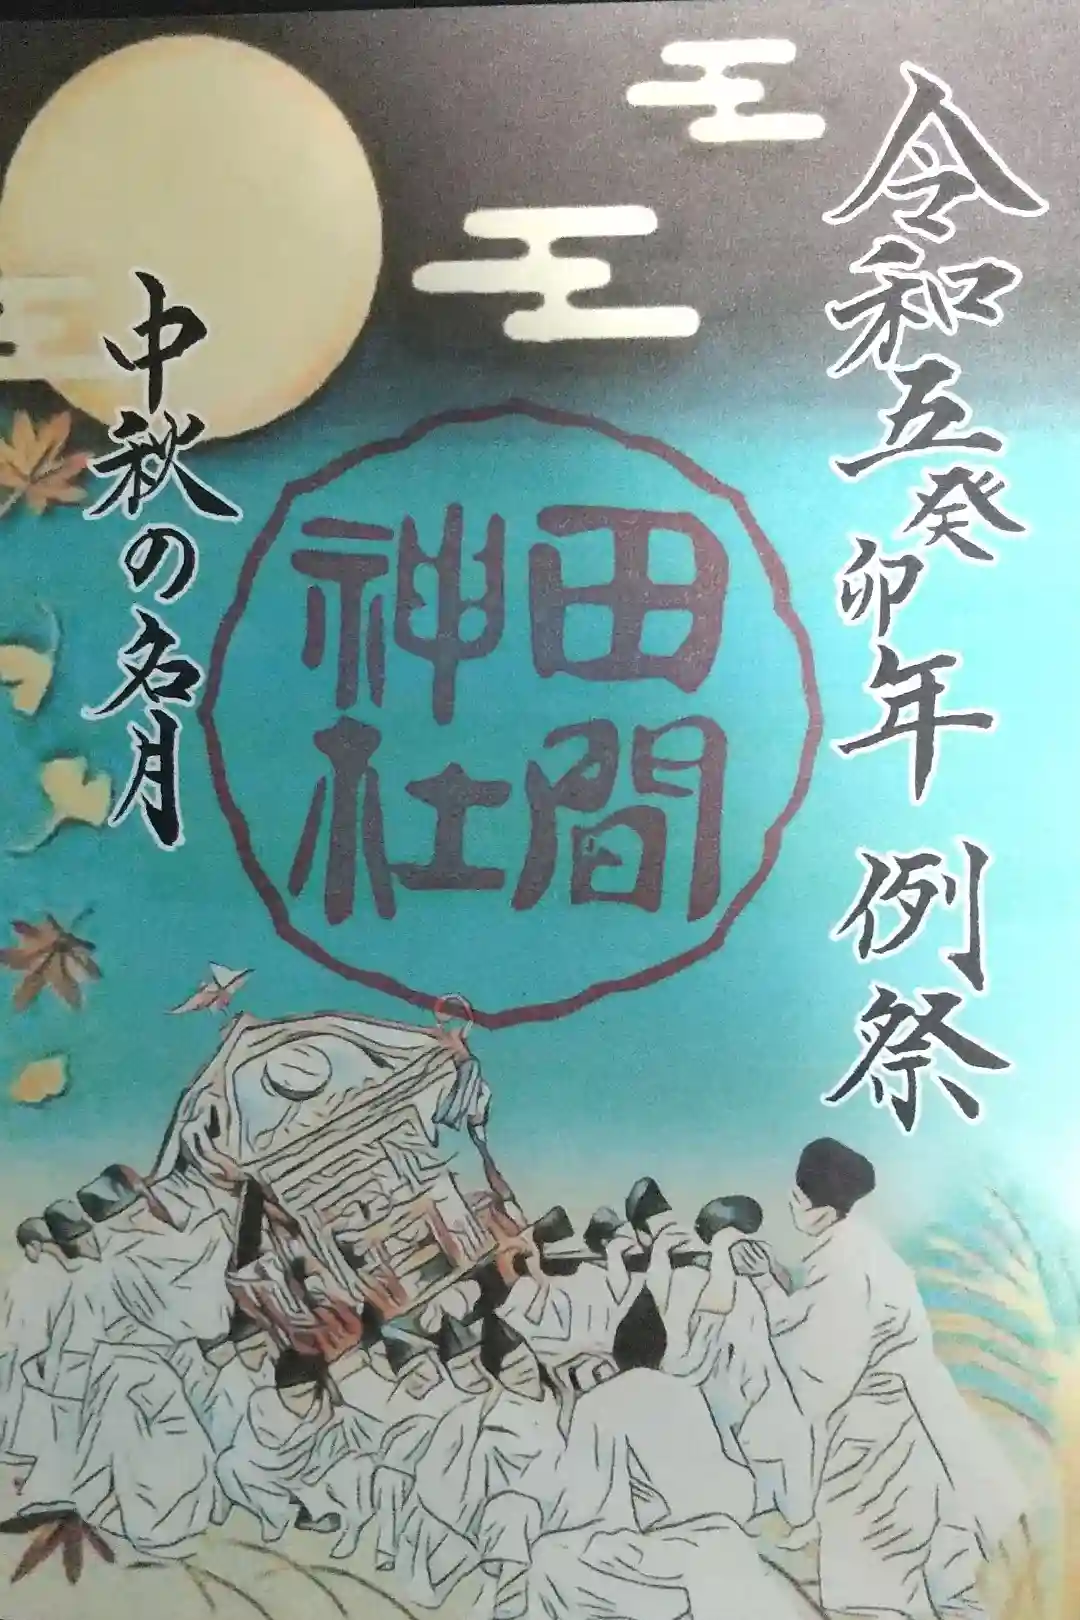 令和五癸卯年 例祭
田間
神社
中秋の名月